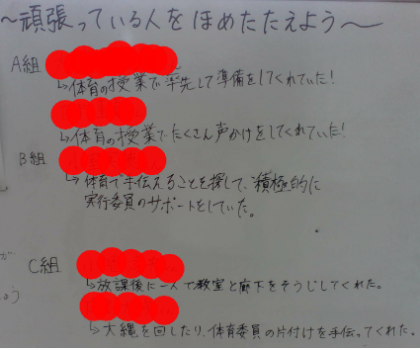 ～頑張っている人をほめたたえよう～
A組
↳体育の授業で率先して準備をしてくれていた!
↳体育の授業でたくさん声かけをしてくれていた!
B組
↳体育で手伝えることを探して、積極的に
実行委員のサポートをしていた。
C組
↳放課後に一人で教室と廊下をそうじしてくれた。
↳大縄を回したり、体育委員の片付けを手伝ってくれた。
が
よう